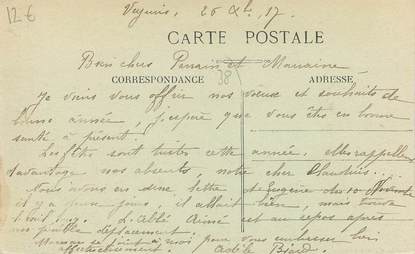 12€
Veynins, 26 Xbre 17.
CARTE POSTALE
Bien chers Parrain et Marraine
CORRESPONDANCE 38 ADRESSE
Je viens vous offrir nos voeux et souhaits de
bonne année, j'espère que vous êtes en bonne
santé à présent.
Les fêtes sont tristes cette année. Elles rappellent
davantage nos absents, notre cher Claudius.
Nous avons eu une lettre d'Eugène du 10
il y a jours, il allait bien, mais trouve
L'abbé Aimé est au repos après
déplacement.
se joint à moi pour vous embrasser bien
affectueusement.